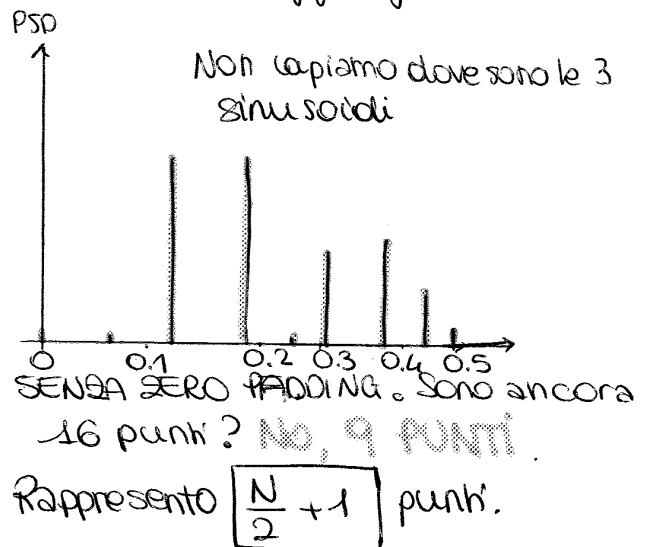 PSD
Non capiamo dove sono le 3
sinusoidi
0 0.1 0.2 0.3 0.4 0.5
SENZA ZERO PADDING. Sono ancora
16 punti? No, 9 PUNTI.
Rappresento N/2 + 1 punti.